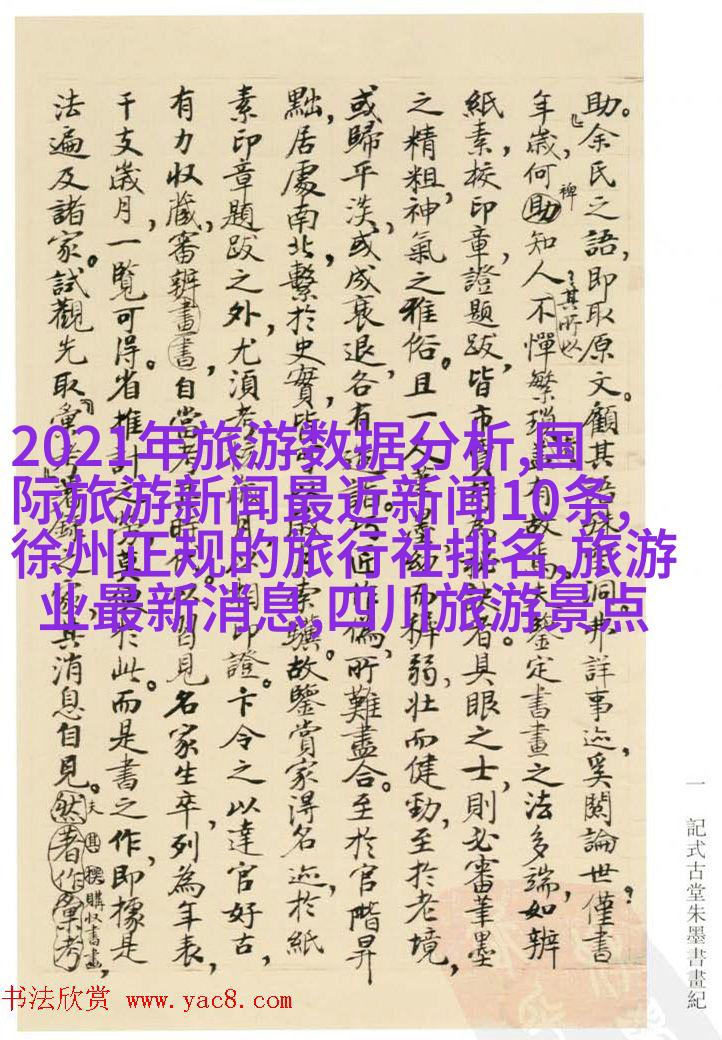 助。余氏之語，即取原文。顧其
洞井詳事迹，奚關論世僅書
年歲，何裨助知人，不憚繁瑣
其所以
鑒定書畫之法多端，如辨
紙素，校印章，證題跋，皆市
者具眼之士，則必審筆墨
之精粗，神氣之雅俗。且一人
而稱弱，壯而健勁，至於老境，
或歸平淡，或成衰退，各有
近作偽，所難盡合。至於官階昇
黜，居處南北，繫於史實，皆
索驥，故鑒賞家得名迹，於紙
素印章題跋之外，尤須考
印證。卞令之以達官好古，
有力收藏，審辨畫書，自當
習見名家生卒，列為年表，
干支歲月，一覽可得。省推計之勞，莫
於此。而是書之作，即據是
法遍及諸家。試觀先取彙考
其消息自見。然著作彙考，
夫
其撰購收書畫
2021年旅游数据分析,国
际旅游新闻最近新闻10条,
徐州正规的旅行社排名,旅游
业最新消息,四川旅游景点
一 記式古堂朱墨書畫紀
书法欣赏 www.yac8.com